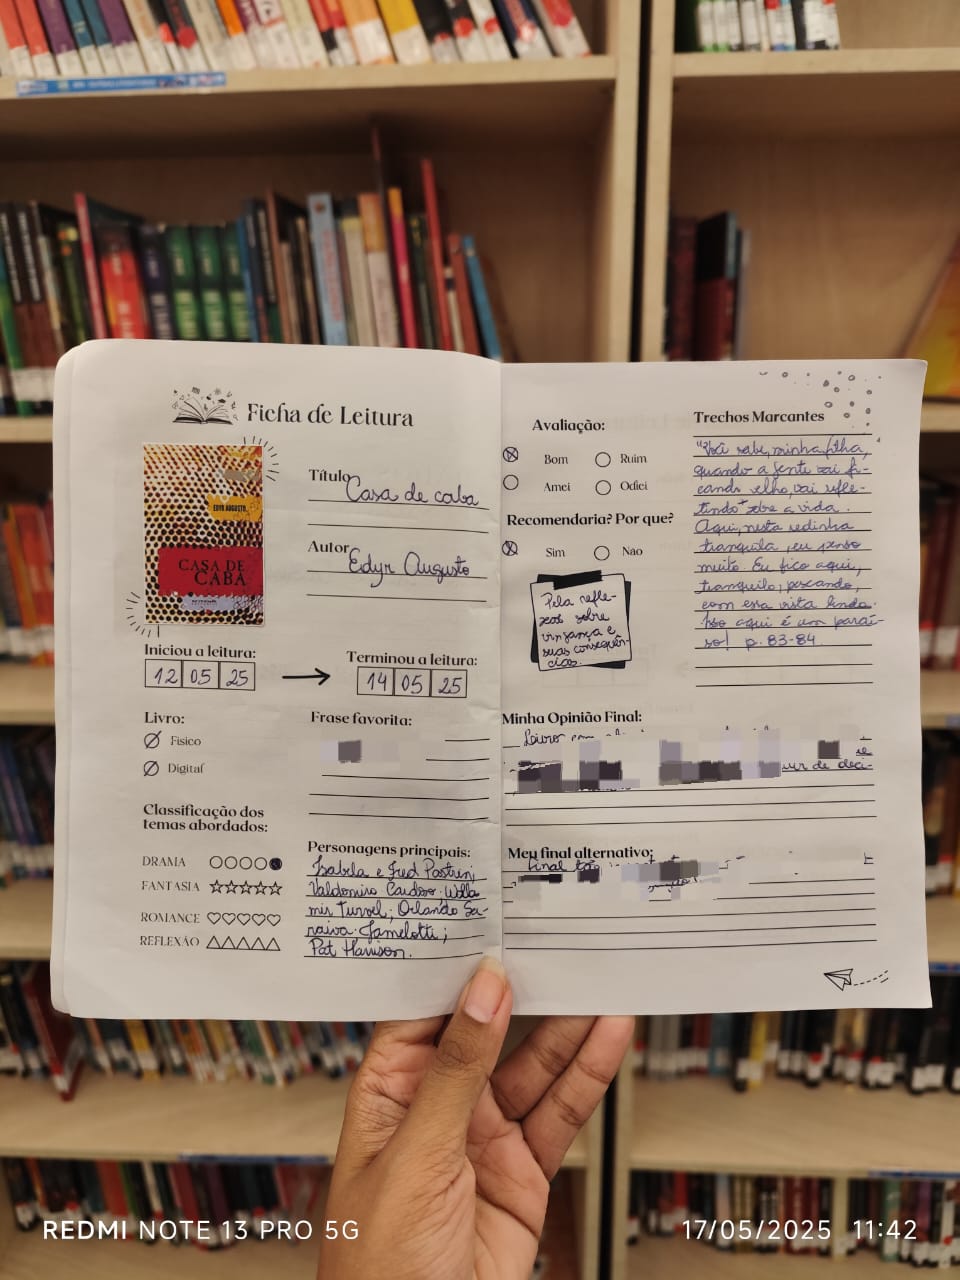 Ficha de Leitura
EDYR AUGUSTO
CASA DE
CABA
Título
Casa de caba
Autor
Edyr Augusto
Iniciou a leitura:
12 05 25
Terminou a leitura:
14 05 25
Livro:
Físico
Digital
Frase favorita:
Classificação dos
temas abordados:
DRAMA
FANTASIA
ROMANCE
REFLEXÃO
Personagens principais:
Isabela e Fred Pastri
Valdomiro Cardoso; Walla
mir Turvel; Orlando Sa-
raiva. Jamelotti;
Pat Harrison.
Avaliação:
Bom Ruim
Amei Odiei
Recomendaria? Por que?
Sim Não
Pela refle-
xos sobre
vingança e
suas consequên-
cias.
Trechos Marcantes
"Você sabe, minha filha,
quando a gente vai fi-
cando velho, vai refle-
tindo sobre a vida.
Aqui, nesta redinha
tranquila, eu penso
muito. Eu fico aqui,
tranquilo, pescando,
com essa vista linda.
Isso aqui é um paraí-
so! p. 83-84
Minha Opinião Final:
Livro com
de deci-
Meu final alternativo:
Final
REDMI NOTE 13 PRO 5G
17/05/2025 11:42